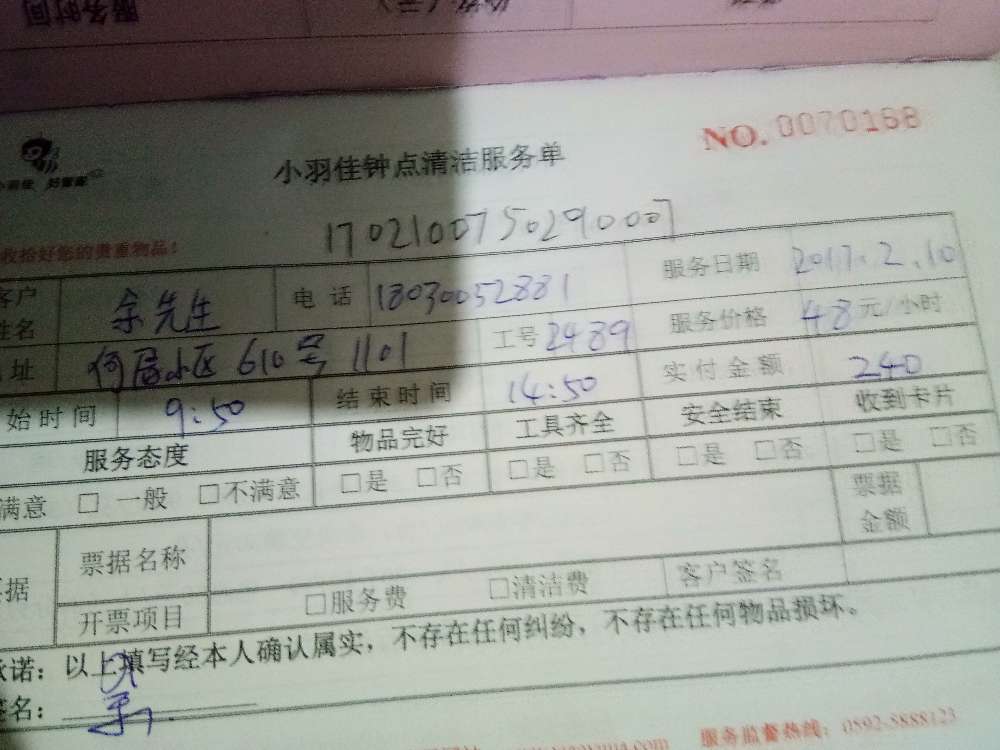 服务时间
NO. 0070168
小羽佳 好管家
小羽佳钟点清洁服务单
收拾好您的贵重物品！
1702100750290007
客户姓名 余先生 电话 18030052881 服务日期 2017.2.10
址 何厝小区 610号 1101 工号 2489 服务价格 48元/小时
始时间 9:50 结束时间 14:50 实付金额 240
服务态度 物品完好 工具齐全 安全结束 收到卡片
满意 □ 一般 □不满意 □是 □否 □是 □否 □是 □否 □是 □否
据 票据名称 票据金额
开票项目 □服务费 □清洁费 客户签名
承诺：以上填写经本人确认属实，不存在任何纠纷，不存在任何物品损坏。
签名：
服务监督热线：0592-5888123